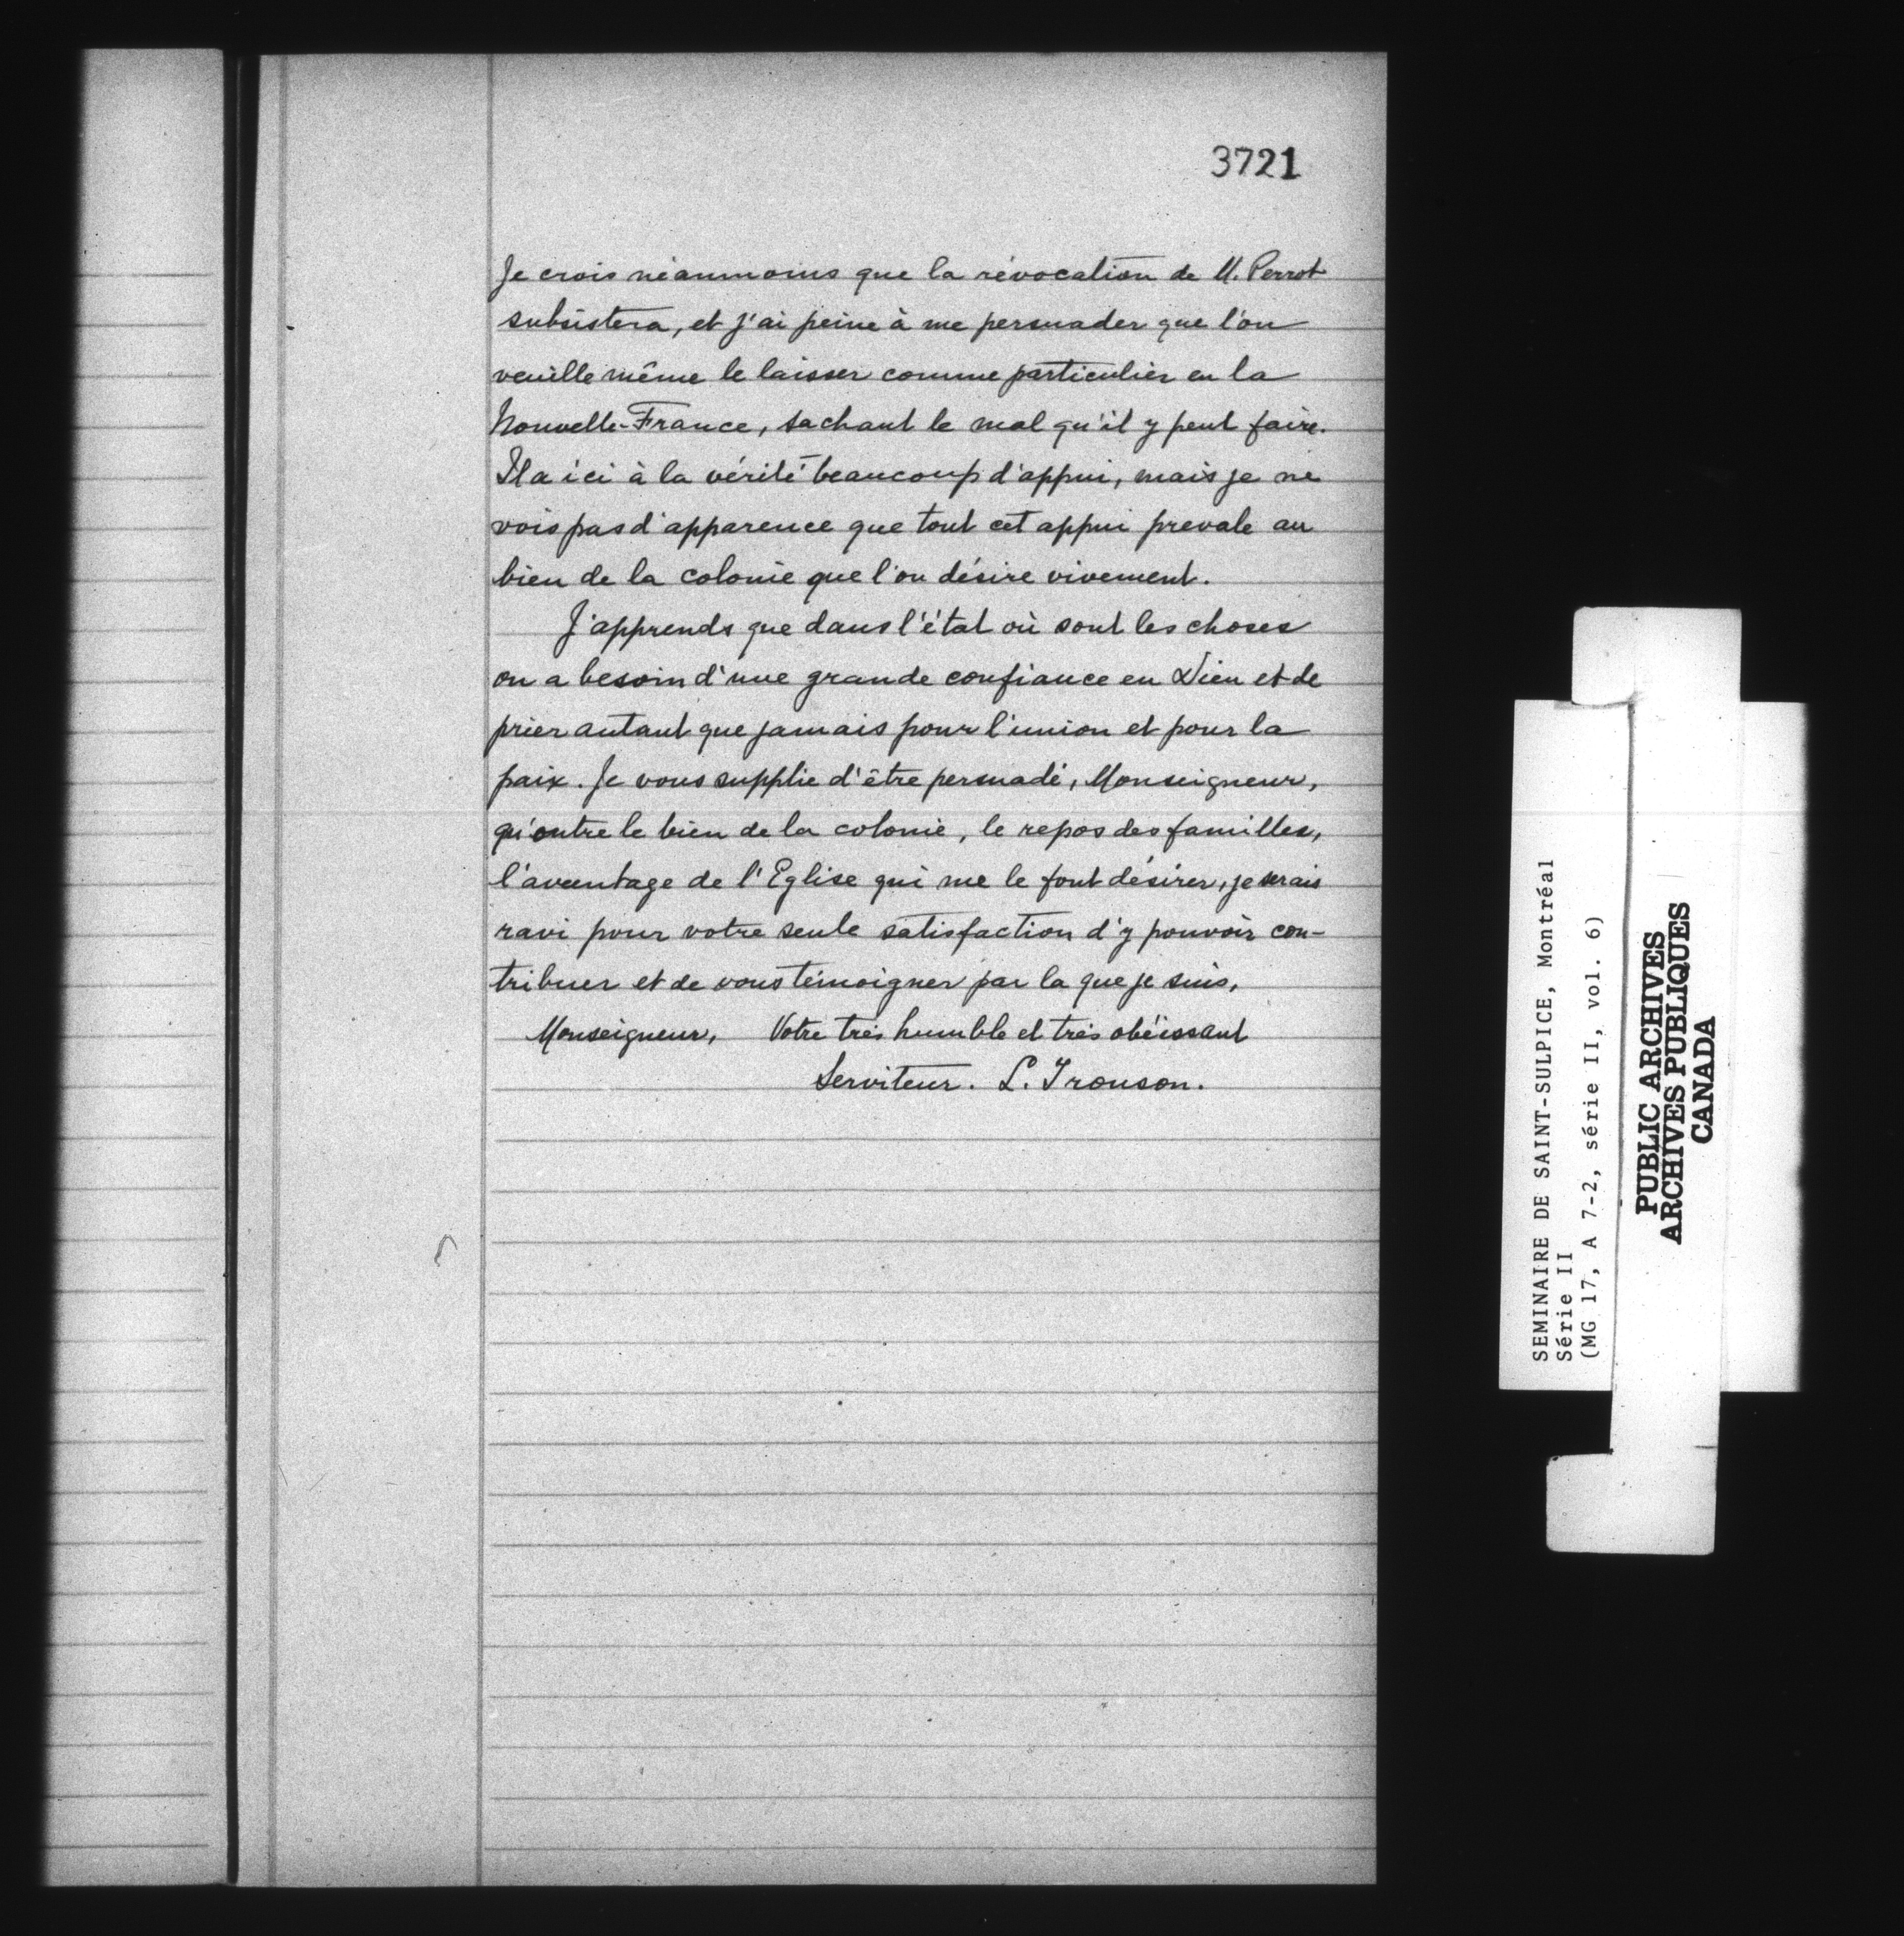 3721
Je crois néanmoins que la révocation de M. Perrot
subsistera, et j'ai peine à me persuader que l'on
veuille même le laisser comme particulier en la
Nouvelle-France, sachant le mal qu'il y peut faire.
Il a ici à la vérité beaucoup d'appui, mais je ne
vois pas d'apparence que tout cet appui prevale au
bien de la colonie que l'on désire vivement.
J'apprends que dans l'état où sont les choses
on a besoin d'une grande confiance en Dieu et de
prier autant que jamais pour l'union et pour la
paix. Je vous supplie d'être persuadé, Monseigneur,
qu'outre le bien de la colonie, le repos des familles,
l'avantage de l'Eglise qui me le font désirer, je serais
ravi pour votre seule satisfaction d'y pouvoir con-
tribuer et de vous témoigner par la que je suis,
Monseigneur, Votre très humble et très obéissant
Serviteur. L. Tronson.
SEMINAIRE DE SAINT-SULPICE, Montréal
Série II
(MG 17, A 7-2, série II, vol. 6)
PUBLIC ARCHIVES
ARCHIVES PUBLIQUES
CANADA